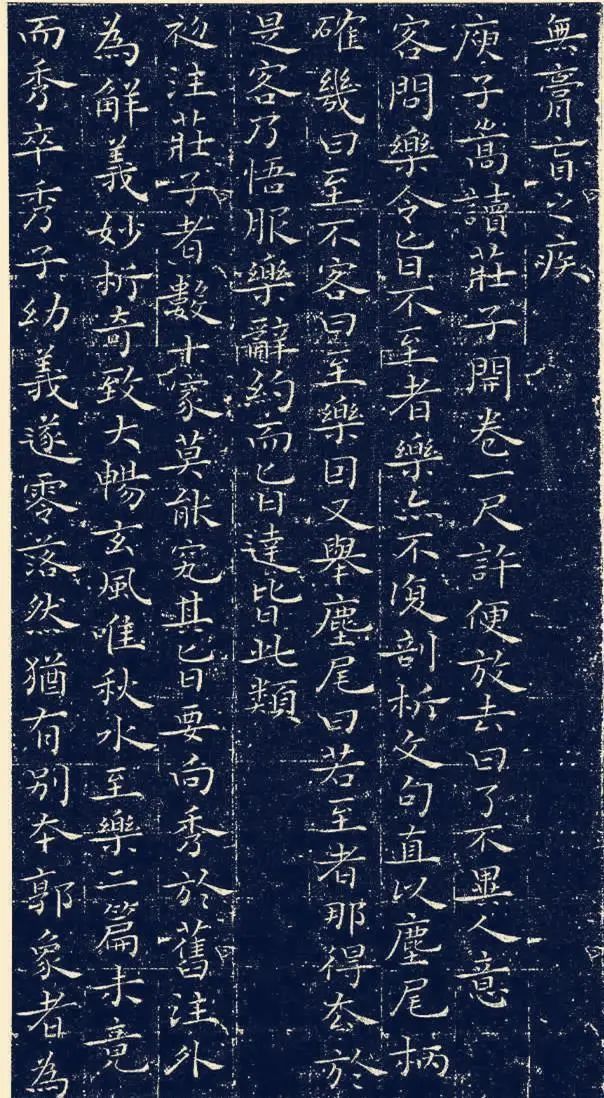 無膏肓之疾
庾子嵩讀莊子開卷一尺許便放去曰了不異人意
客問樂令旨不至者樂亦不復剖析文句直以麈尾柄
確幾曰至不客曰至樂因又舉麈尾曰若至者那得去於
是客乃悟服樂辭約而旨達皆此類
初注莊子者數十家莫能究其旨要向秀於舊注外
為解義妙析奇致大暢玄風唯秋水至樂二篇未竟
而秀卒秀子幼義遂零落然猶有別本郭象者為